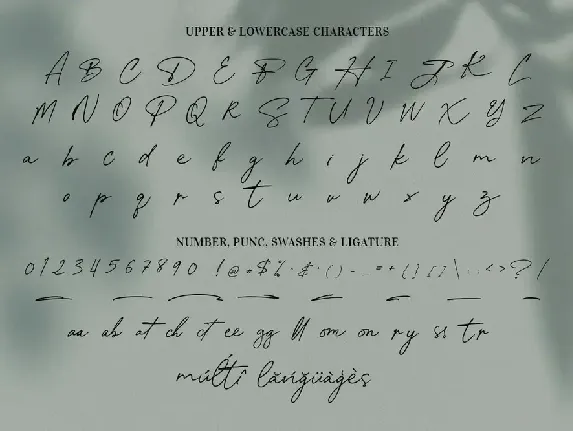 UPPER & LOWERCASE CHARACTERS
A B C D E F G H I J K L
M N O P Q R S T U V W X Y Z
a b c d e f g h i j k l m n
o p q r s t u v w x y z
NUMBER, PUNC, SWASHES & LIGATURE
0 1 2 3 4 5 6 7 8 9 0 ! @
aa ab at ch ct ee gg ll om on ry ss tr